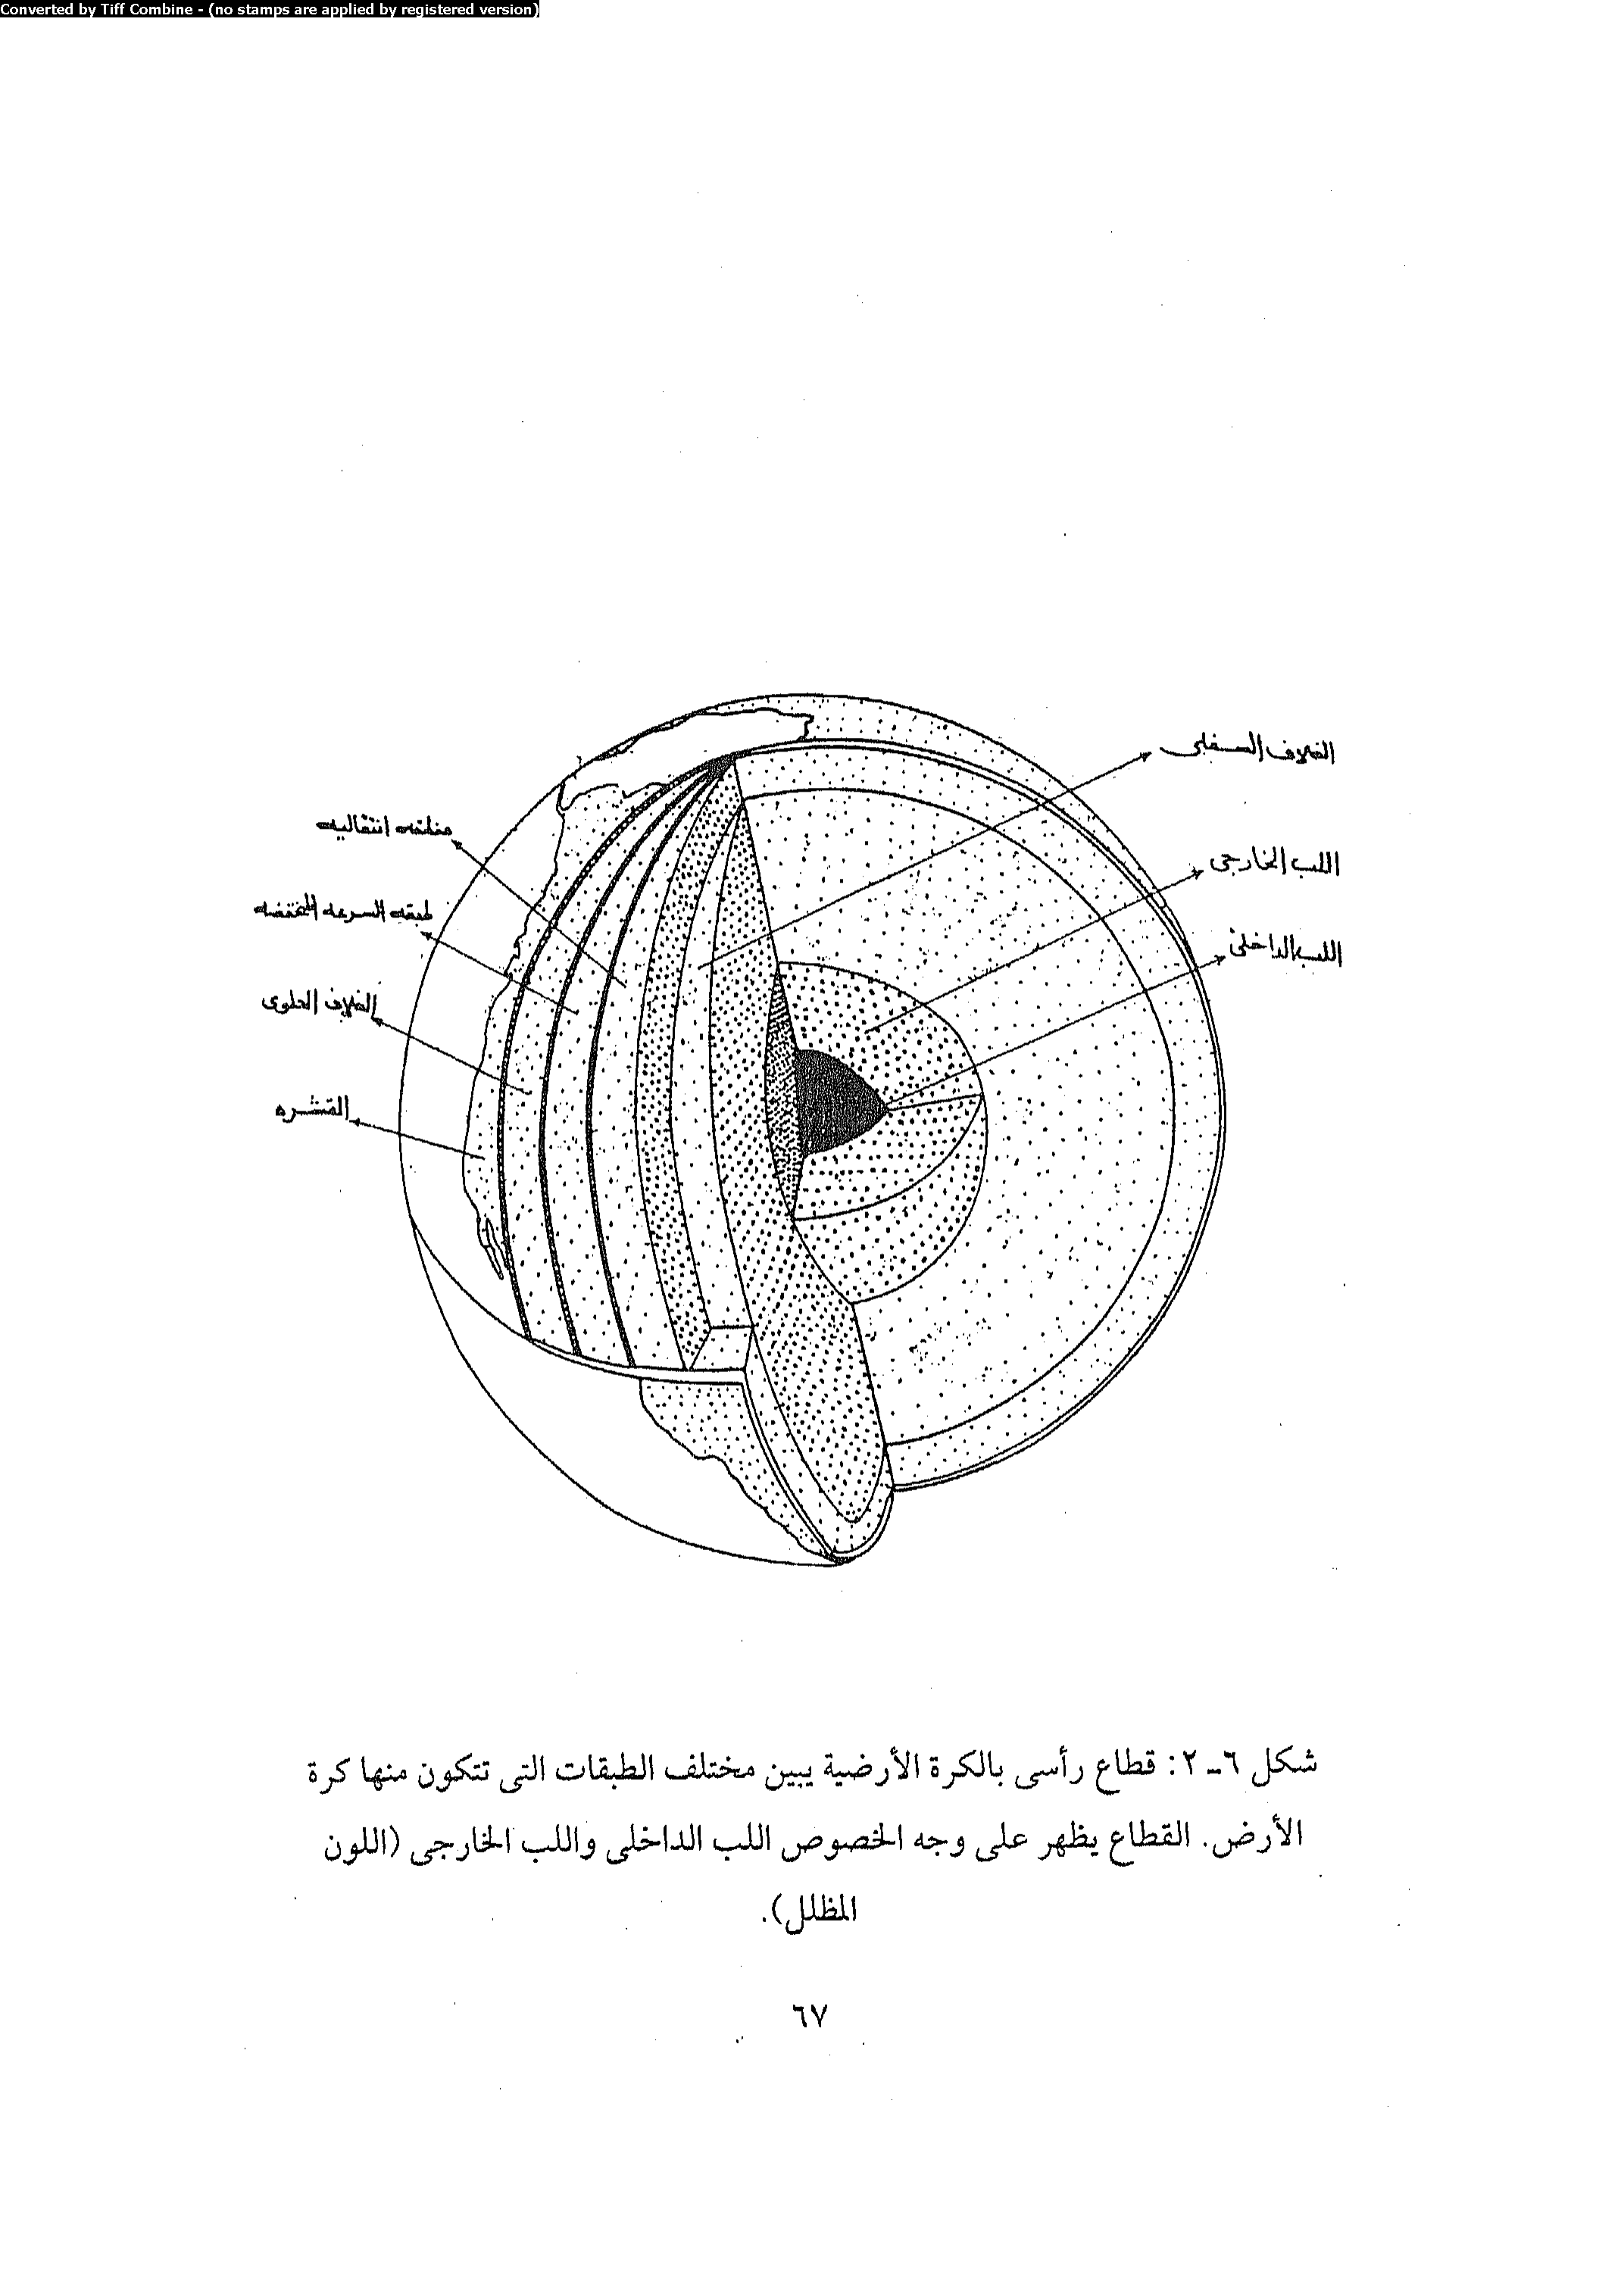 Converted by Tiff Combine - (no stamps are applied by registered version)
الغلاف السفلى
منطقه انتقاليه
اللب الخارجى
طبقه السرعه المنخفضه
اللب الداخلى
الغلاف العلوى
القشره
شكل ٦ـ٢: قطاع رأسى بالكرة الأرضية يبين مختلف الطبقات التى تتكون منها كرة
الأرض. القطاع يظهر على وجه الخصوص اللب الداخلى واللب الخارجى (اللون
المظلل).
٦٧